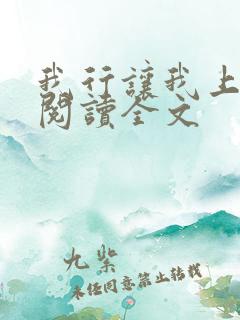 我行讓我上
閱讀全文
九紫
未經同意禁止轉載